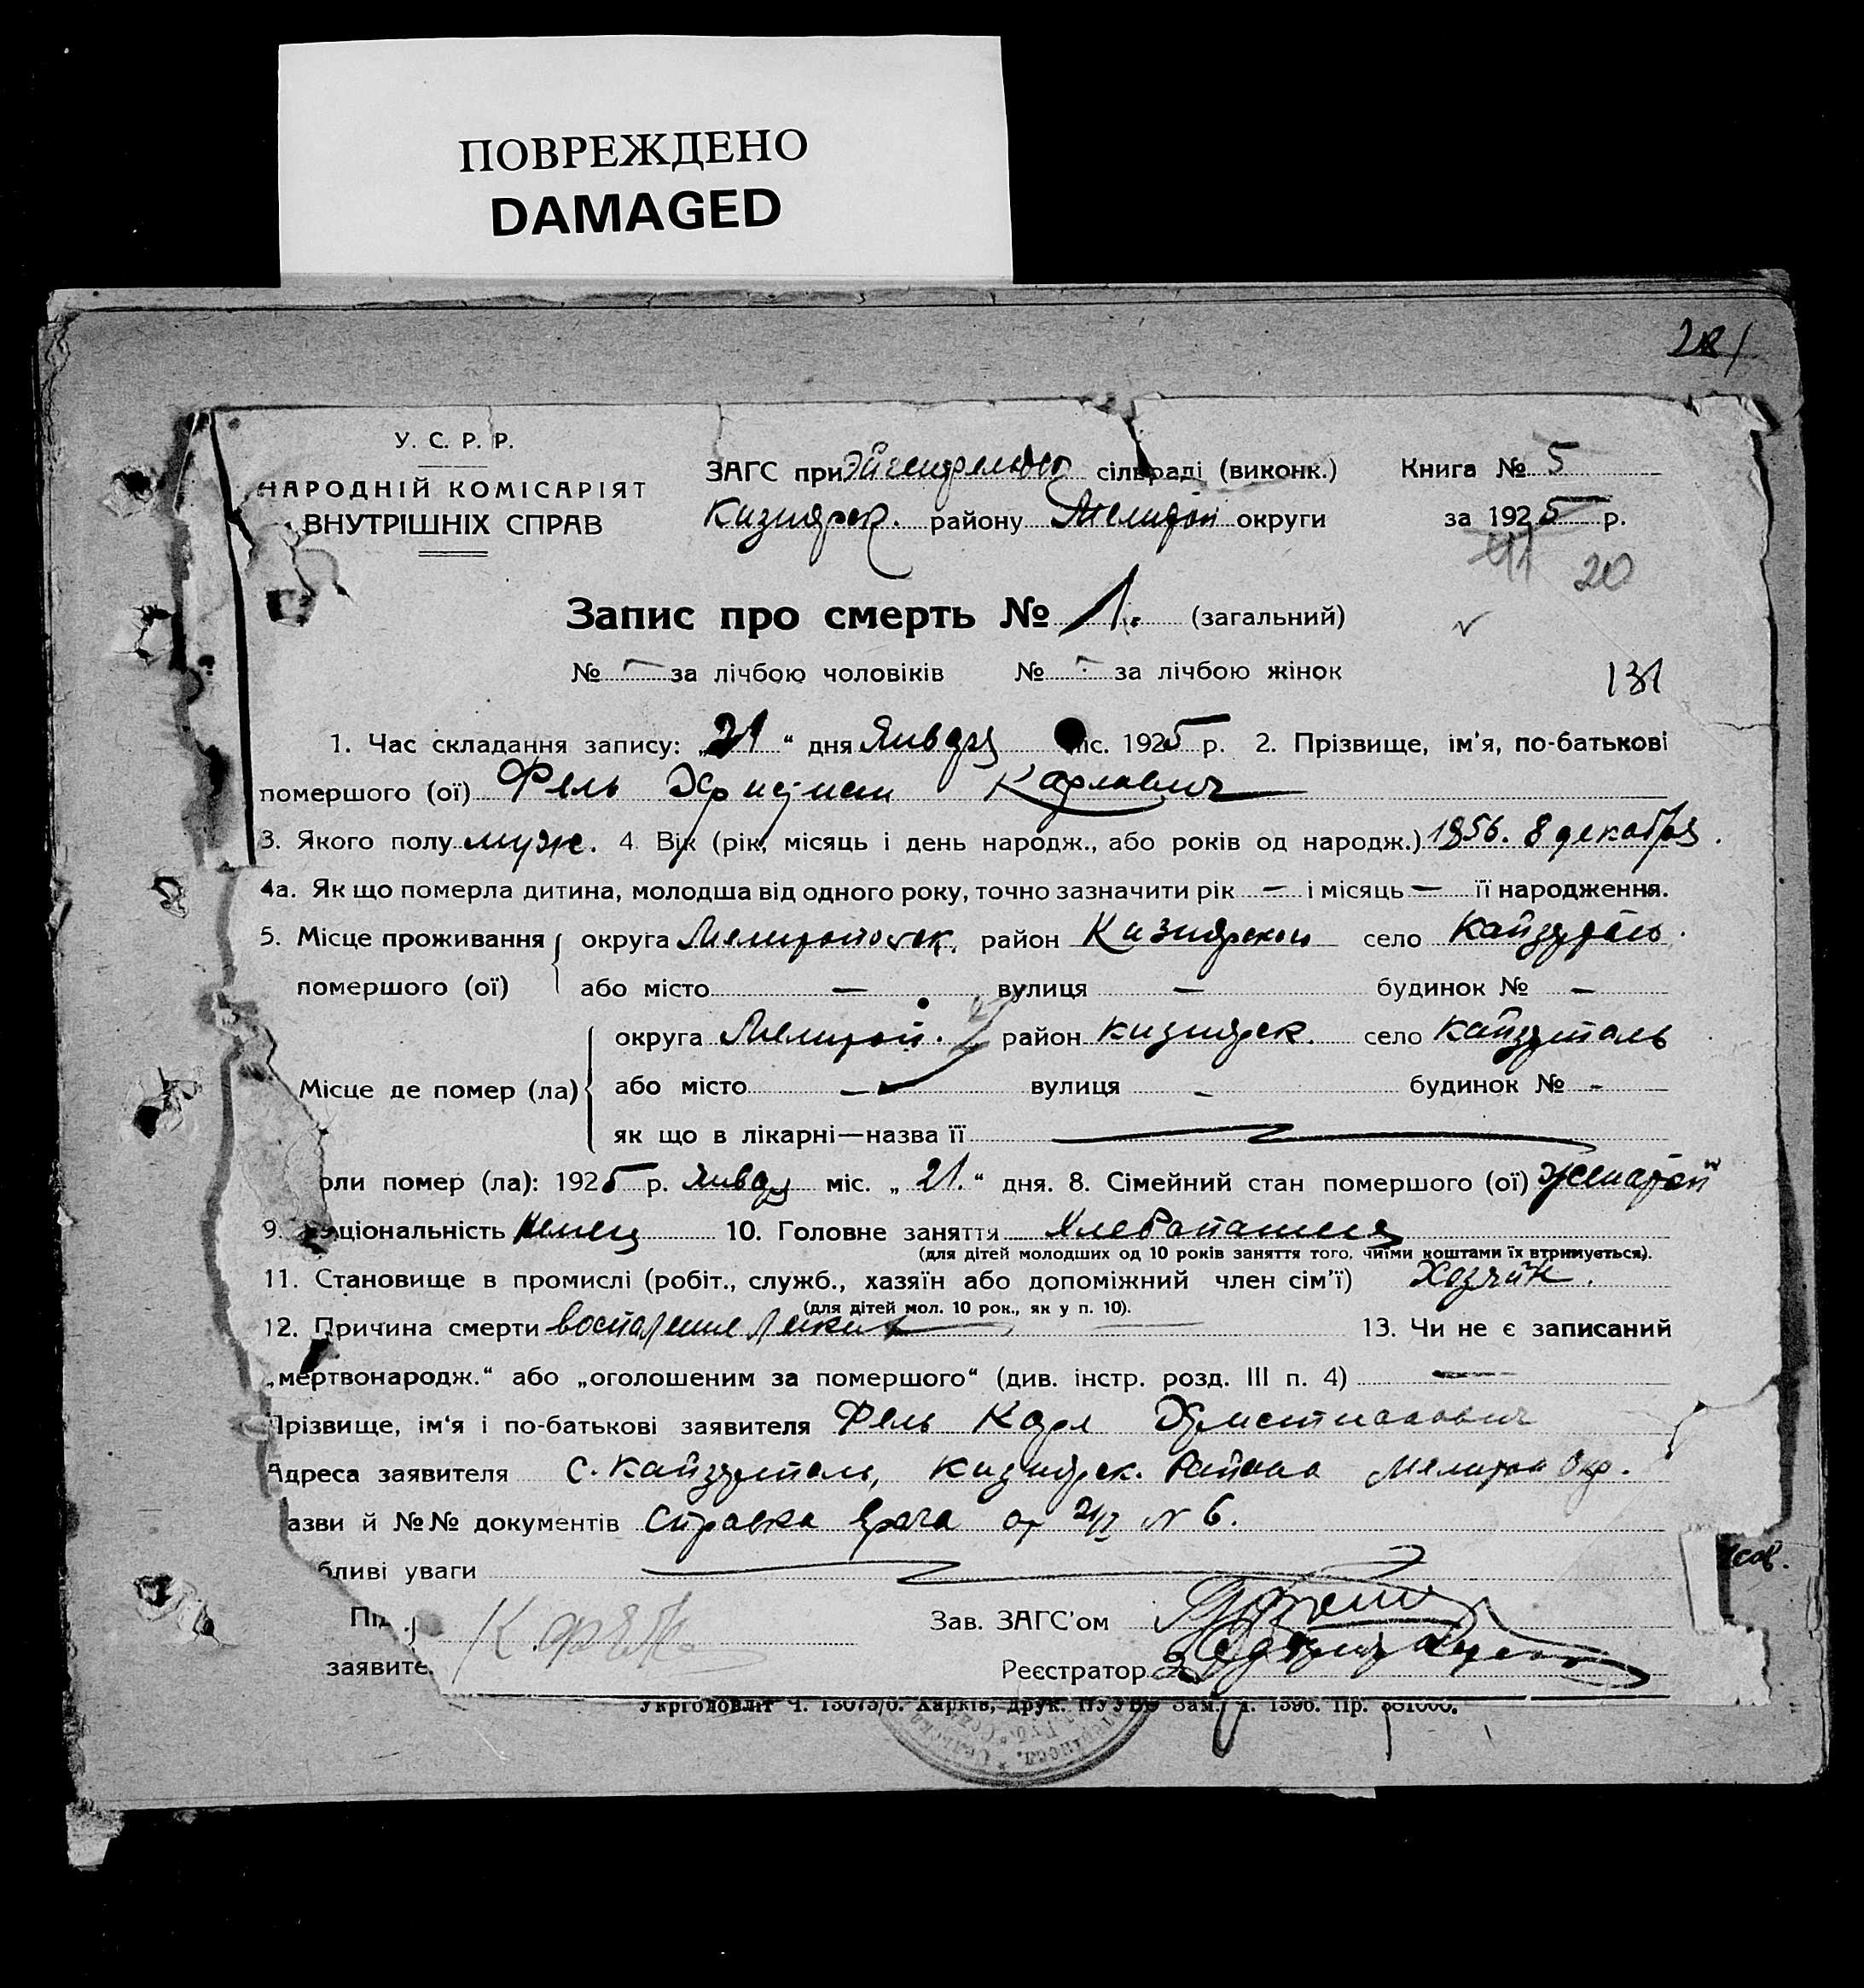 ПОВРЕЖДЕНО
DAMAGED
281
У. С. Р. Р.
НАРОДНІЙ КОМІСАРІЯТ
ВНУТРІШНІХ СПРАВ
ЗАГС при Эйгенфельдск сільраді (виконк.) Книга № 5
Кизиярск. району Мелитоп округи за 1925 р.
20
Запис про смерть № 1. (загальний)
№ - за лічбою чоловіків № - за лічбою жінок
131
1. Час складання запису: „21“ дня Января міс. 1925 р. 2. Прізвище, ім'я, по-батькові
помершого (ої) Фель Христиан Карлович
3. Якого полу муж. 4. Вік (рік, місяць і день народж., або років од народж.) 1856. 8 декабря.
4а. Як що померла дитина, молодша від одного року, точно зазначити рік — і місяць — її народження.
5. Місце проживання округа Мелитопольск. район Кизиярский село Кайзерталь.
помершого (ої) або місто — вулиця — будинок № —
округа Мелитоп. район Кизиярск. село Кайзерталь
Місце де помер (ла) або місто — вулиця - будинок № -
як що в лікарні—назва її
оли помер (ла): 1925 р. Января міс. „21.“ дня. 8. Сімейний стан помершого (ої) женатый
9. ціональність Немец 10. Головне заняття Хлебопашец
(для дітей молодших од 10 років заняття того, чиїми коштами їх втримується).
11. Становище в промислі (робіт., служб., хазяїн або допоміжний член сім'ї) Хозяин.
(для дітей мол. 10 рок., як у п. 10).
12. Причина смерти воспаление легких 13. Чи не є записаний
„мертвонародж.“ або „оголошеним за помершого“ (див. інстр. розд. III п. 4) —
Прізвище, ім'я і по-батькові заявителя Фель Карл Христианович
Адреса заявителя С. Кайзерталь, Кизиярск. Района Мелитоп Окр.
азви й №№ документів Справка врача от 21/I N 6.
бливі уваги
Під
заявите
Зав. ЗАГС'ом
Реєстратор
Укрголовліт Ч. 13073/б. Харків, Друк. Зам. ч. 1396. Пр.